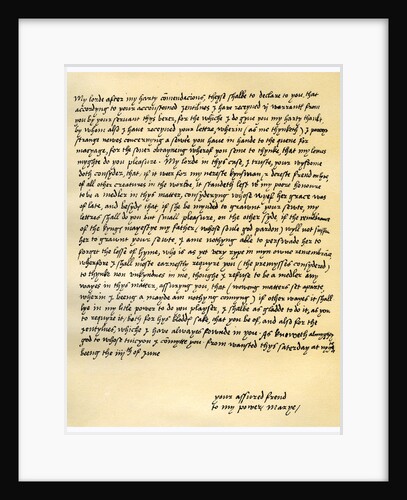 My lorde after my harty cōmendacions, theyse shalbe to declare to you, that
accordyng to your accustomed jentilnes I have receyved vj warants from
you by your servant thys berer, for the whiche I do gyve you my harty thanks,
by whom also I have receyved your lettre, wherin (as me thynketh) I perceyve
strange newes concernyng a sewte you have in hande to the quene for
maryage, for the soner obtayneng wherof you seme to thynke that my lettres
myght do you pleasure. My lorde in thys case, I truste, your wysdome
doth consyder, that if it weer for my nereste kynsman & dereste frend on lyve
of all other creatures in the worlde, it standeth lest with my poore honoure
to be a medler in thys matter, consyderyng whose wief her grace was
of late, and besyds that if she be mynded to graunt your sewte, my
lettres shall do you but small pleasure, on the other syde if the remembrance
of the kyngs mayestye my father (whose soule god pardon) wyll not suffre
her to graunt your sewte, I am nothyng able to perswade her to
forget the losse of hym, who is as yet very rype in myn owne remembrance
wherfore I shall moste earnestly requyre you (the premysses consydered)
to thynke non unkyndnes in me, thoughe I refuse to be a medler any
wayes in thys matter, assuryng you, that (wowyng matters set aparte,
wherin I beyng a mayde am nothyng connyng) if other wayes it shall
lye in my litle power to do you pleasure, I shalbe as gladde to do it, as you
to requyre it, both for hys bloods sake, that you be of, and also for the
jentylnes, whiche I have always founde in you. As knoweth almyghty
god to whose tuicyon I commytte you. From wansted thys saterday at nyght
beyng the iiijth of June
your assured frend
to my power Marye/